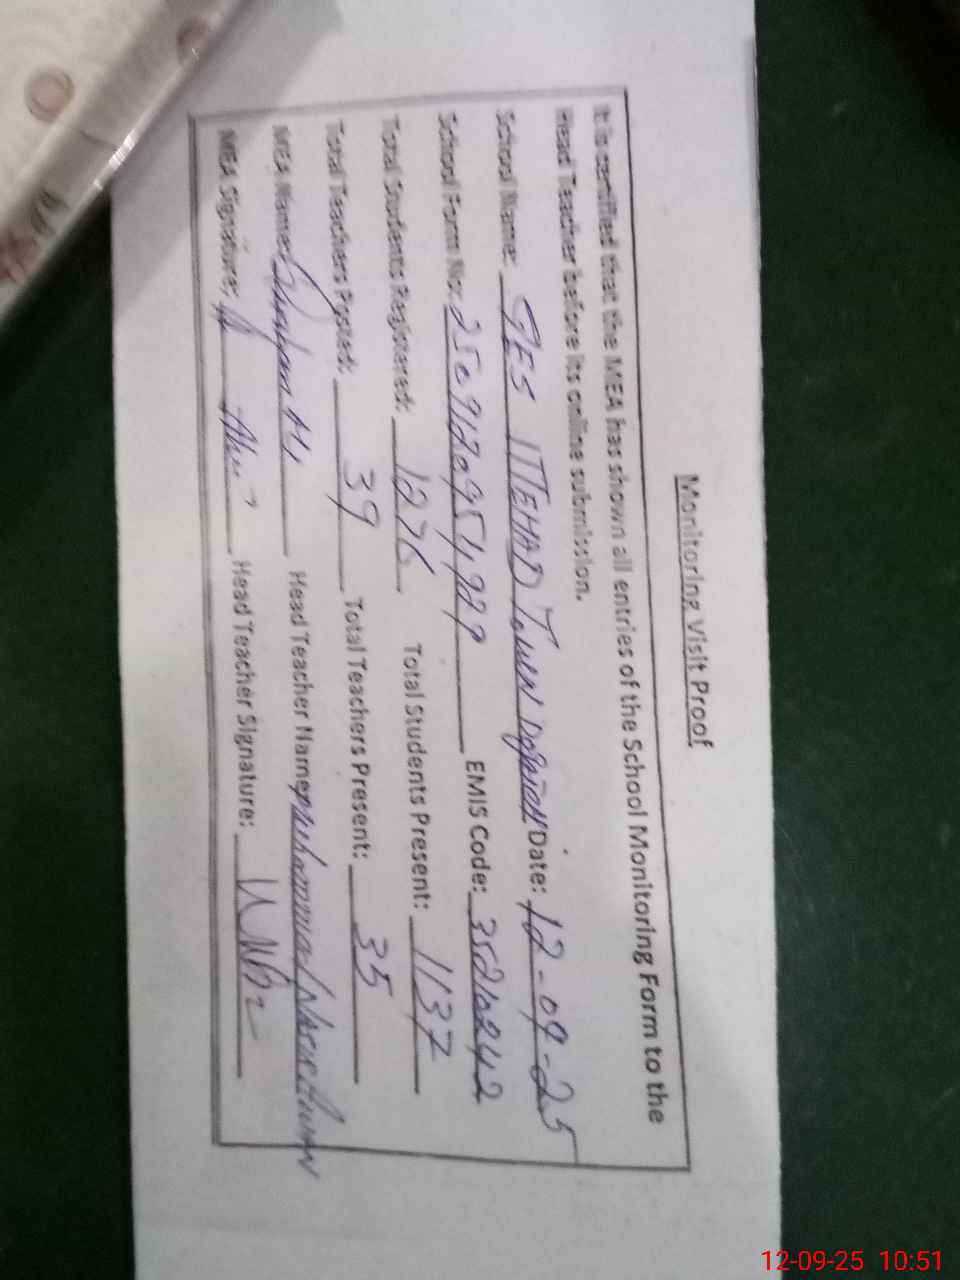 Monitoring Visit Proof
It is certified that the MEA has shown all entries of the School Monitoring Form to the
Head Teacher before its online submission.
School Name: GES ITTEHAD Town Date: 12-09-25
School Form No: EMIS Code: 35210242
Total Students Registered: 1276 Total Students Present: 1137
Total Teachers Posted: 39 Total Teachers Present: 35
MEA Name: Head Teacher Name: Muhammad
MEA Signature: Head Teacher Signature:
12-09-25 10:51